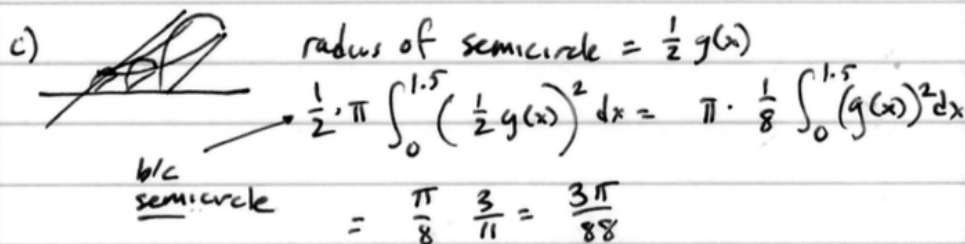 c) radius of semicircle = 1/2 g(x)
1/2 · π ∫₀^1.5 (1/2 g(x))² dx = π · 1/8 ∫₀^1.5 (g(x))² dx
b/c
semicircle
= π/8 3/11 = 3π/88